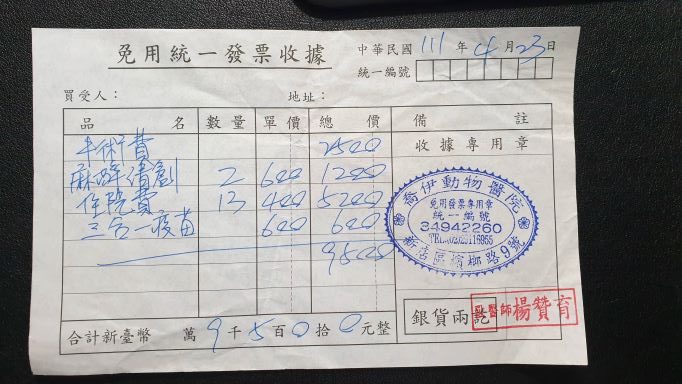 免用統一發票收據
中華民國 111 年 4 月 23 日
統一編號
買受人： 地址：
品名 數量 單價 總價 備註
手術費 2500
麻醉信劑 2 600 1200
住院費 13 400 5200
三合一疫苗 600 600
9500
收據專用章
喬伊動物醫院
免用發票專用章
統一編號
34942260
TEL:(02)29116955
新店區檳榔路9號
合計新臺幣 萬 9 千 5 百 0 拾 0 元整
銀貨兩訖
獸醫師 楊贊育